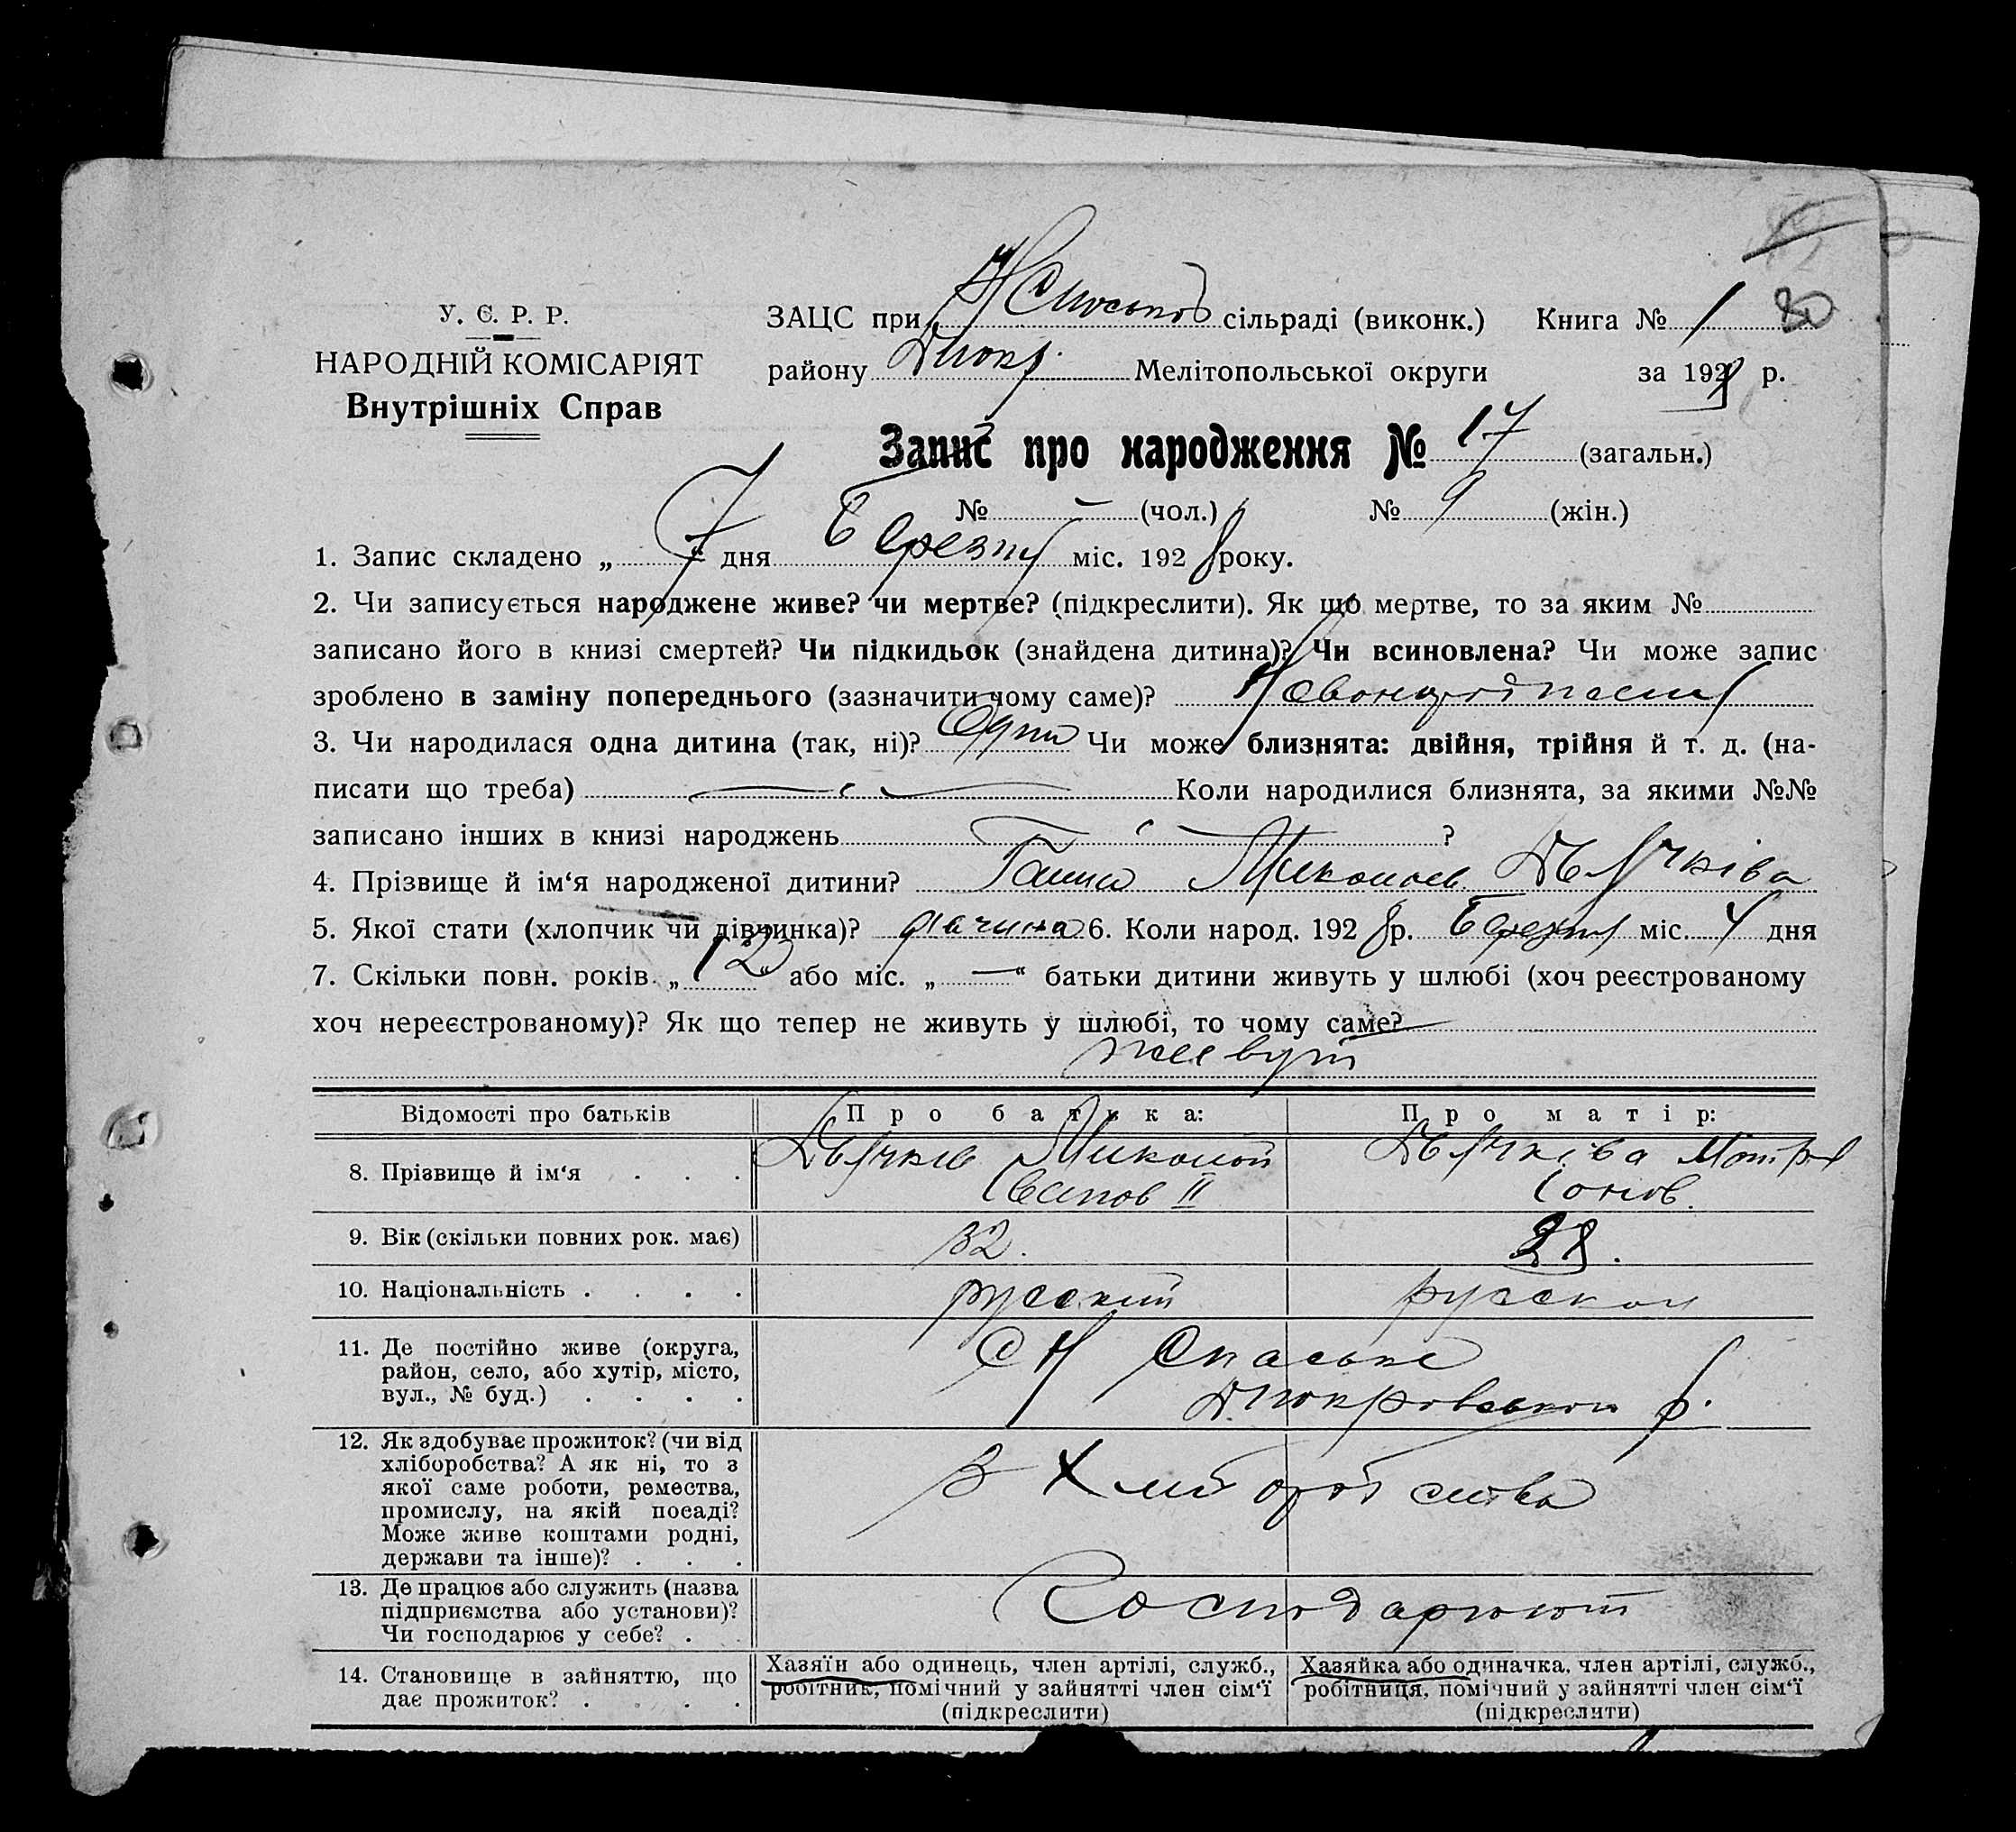 У. Є. Р. Р.
НАРОДНІЙ КОМІСАРІЯТ
Внутрішніх Справ
ЗАЦС при Н Спаськов сільраді (виконк.) Книга № 1 80
району Дпокр. Мелітопольської округи за 1928 р.
Запис про народження № 17 (загальн.)
№ — (чол.) № 9 (жін.)
1. Запис складено „ 7 “ дня Березня міс. 1928 року.
2. Чи записується народжене живе? чи мертве? (підкреслити). Як що мертве, то за яким №
записано його в книзі смертей? Чи підкидьок (знайдена дитина)? Чи всиновлена? Чи може запис
зроблено в заміну попереднього (зазначити чому саме)?
3. Чи народилася одна дитина (так, ні)? Одна Чи може близнята: двійня, трійня й т. д. (на-
писати що треба) — Коли народилися близнята, за якими №№
записано інших в книзі народжень — ?
4. Прізвище й ім‘я народженої дитини? Ганна Миколаев Дьячківа
5. Якої стати (хлопчик чи дівчинка)? дівчина 6. Коли народ. 1928 р. Березня міс. 4 дня
7. Скільки повн. років „ 12 “ або міс. „ — “ батьки дитини живуть у шлюбі (хоч реєстрованому
хоч нереєстрованому)? Як що тепер не живуть у шлюбі, то чому саме?
живут
Відомості про батьків Про батька: Про матір:
8. Прізвище й ім‘я . . . Дьячків Миколай Дьячківа Мотря
II
9. Вік (скільки повних рок. має) 32. 28.
10. Національність . . . . русский русская
11. Де постійно живе (округа, район, село, або хутір, місто, вул., № буд.) . . . . с Н Спаське
Дпокровського р.
12. Як здобуває прожиток? (чи від хліборобства? А як ні, то з якої саме роботи, ремества, промислу, на якій посаді? Може живе коштами родні, держави та інше)? . . . З Хліборобства
13. Де працює або служить (назва підприємства або установи)? Чи господарює у себе? . Господарюют
14. Становище в зайняттю, що дає прожиток? . . . . Хазяїн або одинець, член артілі, служб., робітник, помічний у зайнятті член сім‘ї (підкреслити) Хазяйка або одиначка, член артілі, служб., робітниця, помічний у зайнятті член сім‘ї (підкреслити)